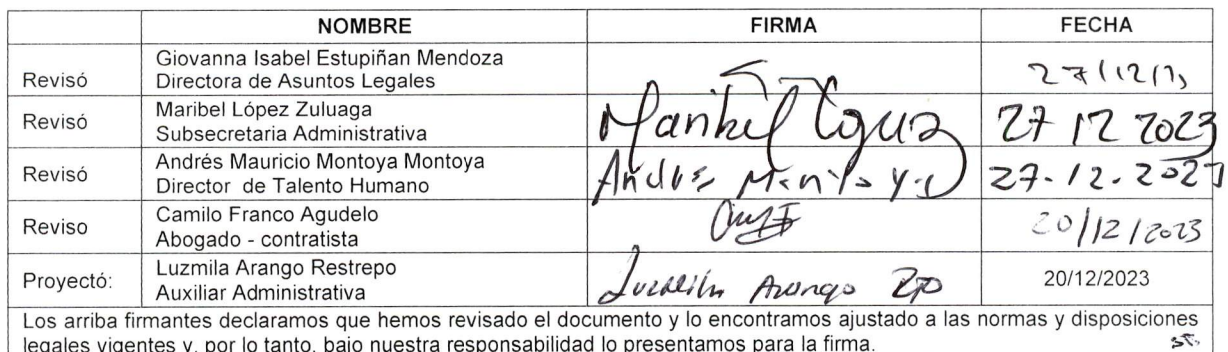 NOMBRE FIRMA FECHA
Revisó
Giovanna Isabel Estupiñan Mendoza
Directora de Asuntos Legales
Revisó
Maribel López Zuluaga
Subsecretaria Administrativa
27 12 2023
Revisó
Andrés Mauricio Montoya Montoya
Director de Talento Humano
27.12.2023
Reviso
Camilo Franco Agudelo
Abogado - contratista
20/12/2023
Proyectó:
Luzmila Arango Restrepo
Auxiliar Administrativa
20/12/2023
Los arriba firmantes declaramos que hemos revisado el documento y lo encontramos ajustado a las normas y disposiciones
legales vigentes y, por lo tanto, bajo nuestra responsabilidad lo presentamos para la firma.